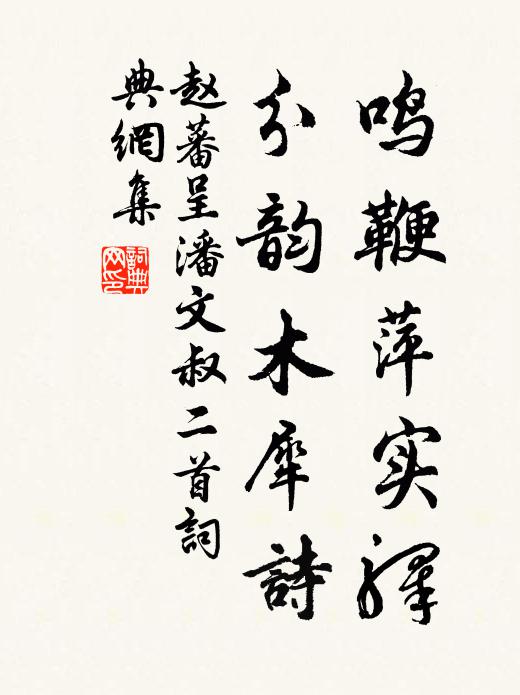 鸣鞭萍实驿
分韵木犀詩
赵蕃呈潘文叔二首詞
典網集
詞典网印